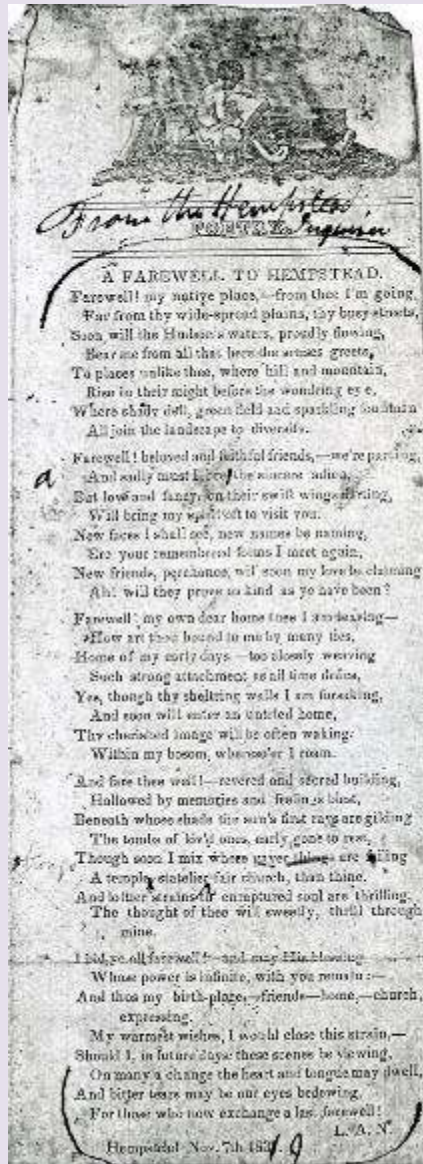 From the Hempstead
POETRY. Inquirer
A FAREWELL TO HEMPSTEAD.
Farewell! my native place,—from thee I'm going,
Far from thy wide-spread plains, thy busy streets,
Soon will the Hudson's waters, proudly flowing,
Bear me from all that here the senses greets,
To places unlike thee, where hill and mountain,
Rise in their might before the wondring eye,
Where shady dell, green field and sparkling fountain
All join the landscape to diversify.
Farewell! beloved and faithful friends,—we're parting,
a
And sadly must I the sincere adieu,
But love and fancy, on their swift wings darting,
Will bring my spirit oft to visit you.
New faces I shall see, new names be naming,
Ere your remembered forms I meet again,
New friends, perchance, will soon my love be claiming
Ah! will they prove so kind as ye have been?
Farewell! my own dear home thee I am leaving—
How art thou bound to me by many ties,
Home of my early days—too closely weaving
Such strong attachment as all time defies,
Yes, though thy sheltring walls I am forsaking,
And soon will enter an untried home,
Thy cherished image will be often waking
Within my bosom, wheresoe'er I roam.
And fare thee well!—revered and sacred building,
Hallowed by memories and feelings blest,
Beneath whose shade the sun's first rays are gilding
The tombs of lov'd ones, early gone to rest,
Though soon I mix where things are
A temple, statelier fair church, than thine.
And loftier strains enraptured soul are thrilling,
The thought of thee will sweetly, thrill through
mine.
I bid ye all farewell!—and may His blessing
Whose power is infinite, with you remain:—
And thus my birth-place,—friends—home,—church,
expressing.
My warmest wishes, I would close this strain,—
Should I, in future days these scenes be viewing,
On many a change the heart and tongue may dwell,
And bitter tears may be our eyes bedewing,
For those who now exchange a last farewell!
L. A. N.
Hempstead Nov. 7th